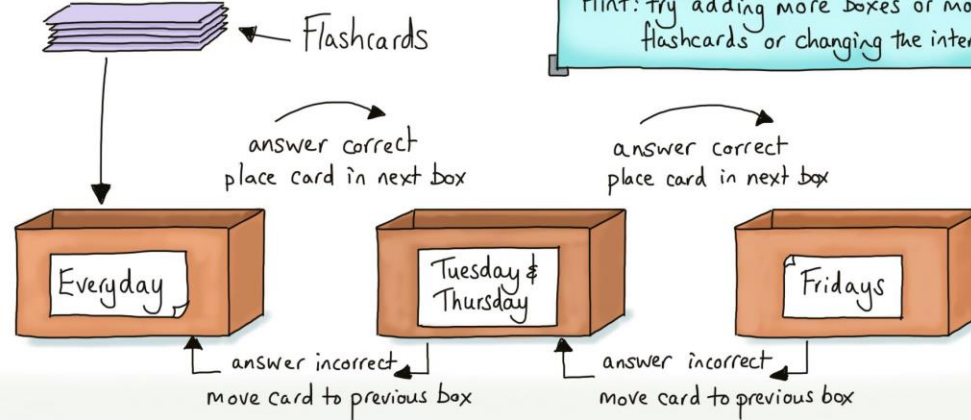 Hint: Try adding more boxes or mo
flashcards or changing the inter
Flashcards
answer correct
place card in next box
answer correct
place card in next box
Everyday
Tuesday &
Thursday
Fridays
answer incorrect
move card to previous box
answer incorrect
move card to previous box